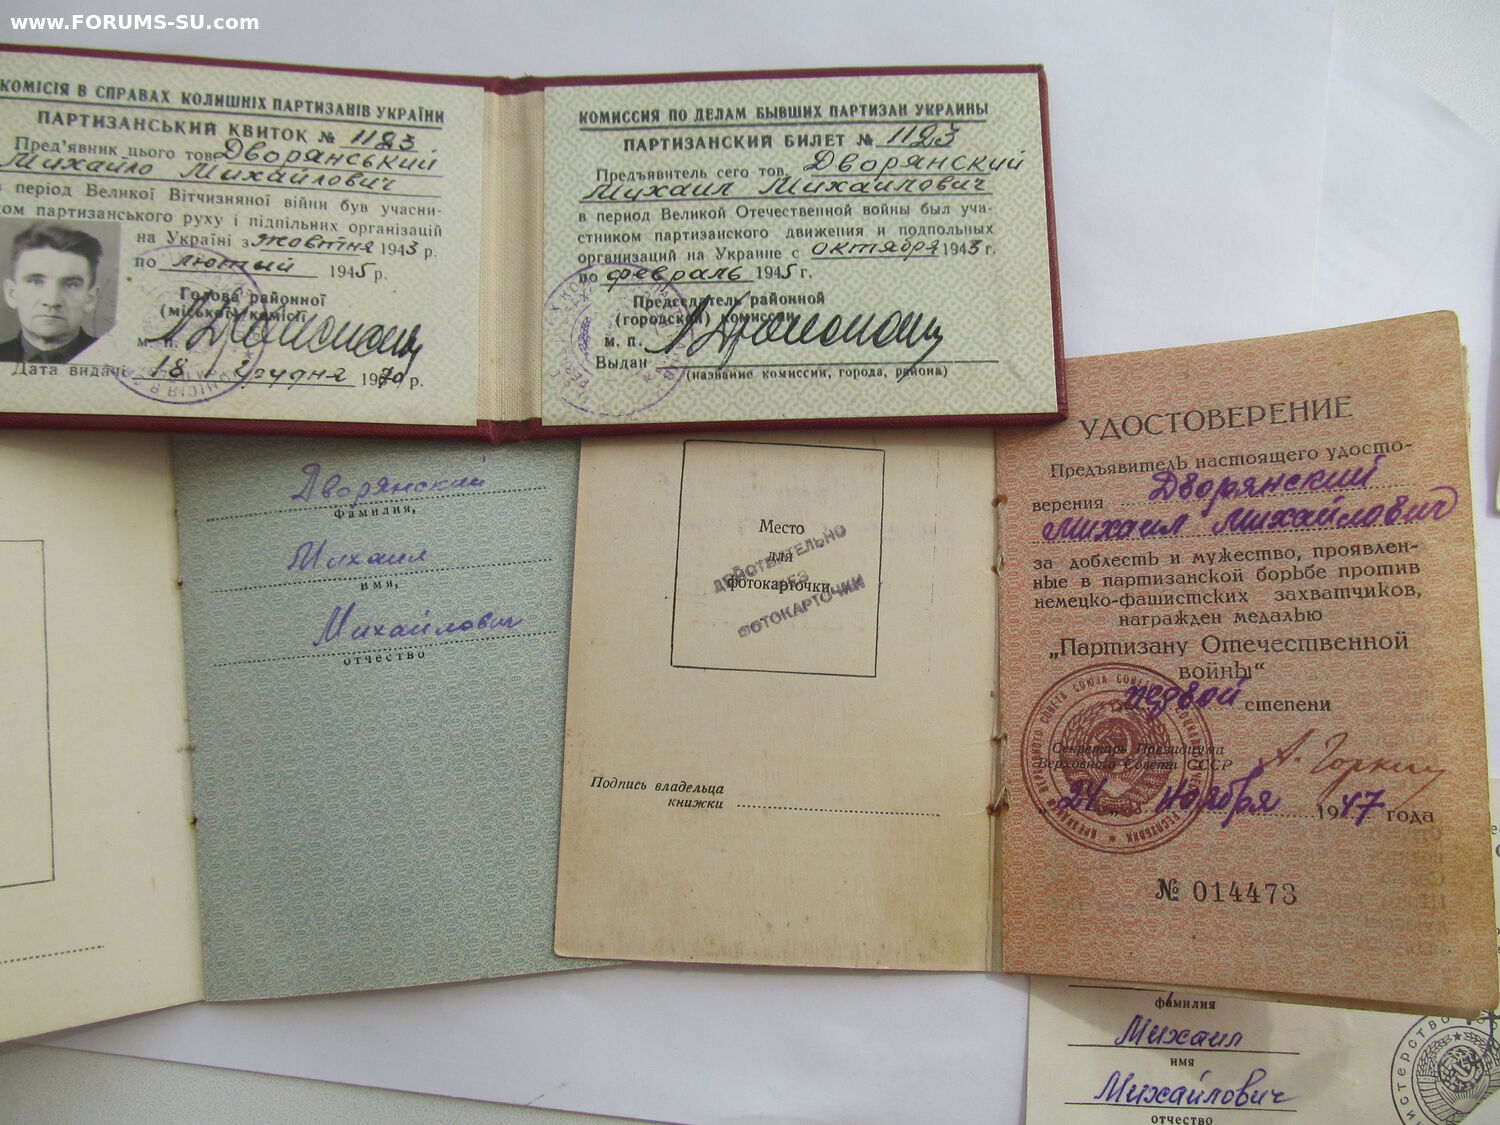 www.FORUMS-SU.com
КОМІСІЯ В СПРАВАХ КОЛИШНІХ ПАРТИЗАНІВ УКРАЇНИ
ПАРТИЗАНСЬКИЙ КВИТОК № 1123
Пред'явник цього тов. Дворянський
Михайло Михайлович
період Великої Вітчизняної війни був учасни-
ком партизанського руху і підпільних організацій
на Україні з жовтня 1943 р.
по лютий 1945 р.
Голова районної
(міської) комісії
м. п.
Дата видачі 18 грудня 1970 р.
КОМИССИЯ ПО ДЕЛАМ БЫВШИХ ПАРТИЗАН УКРАИНЫ
ПАРТИЗАНСКИЙ БИЛЕТ № 1123
Предъявитель сего тов. Дворянский
Михаил Михайлович
в период Великой Отечественной войны был уча-
стником партизанского движения и подпольных
организаций на Украине с октября 1943 г.
по февраль 1945 г.
Председатель районной
(городской) комиссии
м. п.
Выдан
(название комиссии, города, района)
Дворянский
фамилия,
Михаил
имя,
Михайлович
отчество
Место
для
фотокарточки
ДЕЙСТВИТЕЛЬНО
БЕЗ
ФОТОКАРТОЧКИ
Подпись владельца
книжки
УДОСТОВЕРЕНИЕ
Предъявитель настоящего удосто-
верения Дворянский
Михаил Михайлович
за доблесть и мужество, проявлен-
ные в партизанской борьбе против
немецко-фашистских захватчиков,
награжден медалью
„Партизану Отечественной
войны“
первой степени
Секретарь Президиума
Верховного Совета СССР А. Горкин
„24„ ноября 1947 года
№ 014473
фамилия
Михаил
имя
Михайлович
отчество